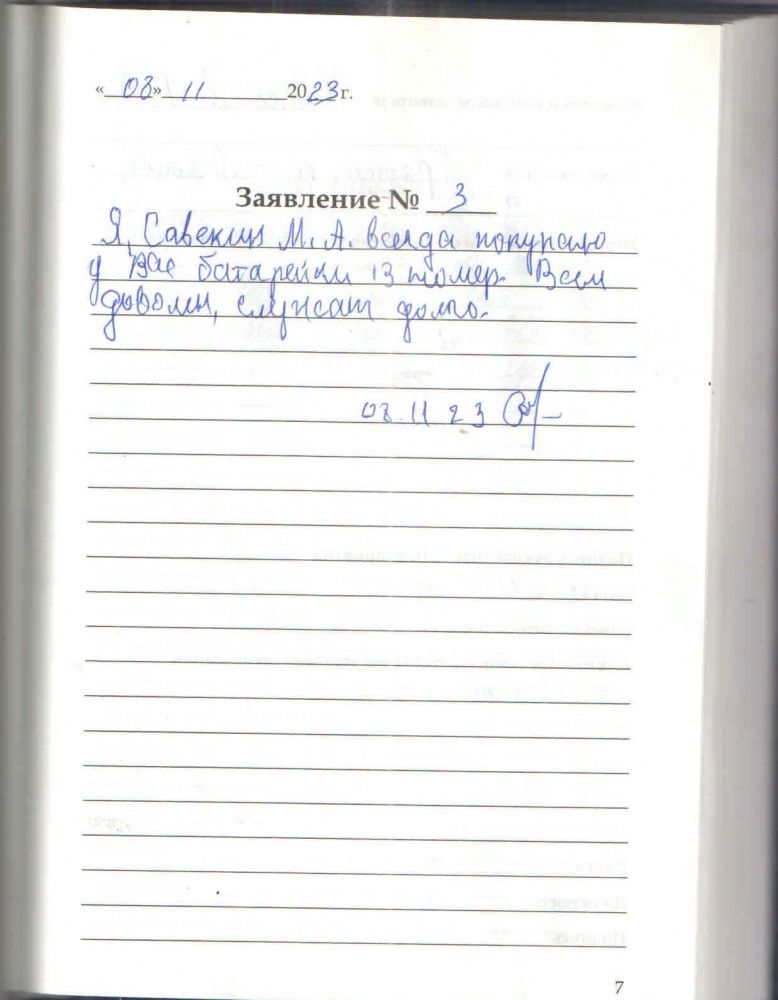 «08» 11 2023 г.
Заявление № 3
Я, Савекин М. А. всегда покупаю
у Вас батарейки 13 номер. Всем
доволен, служат долго.
08.11 23
7